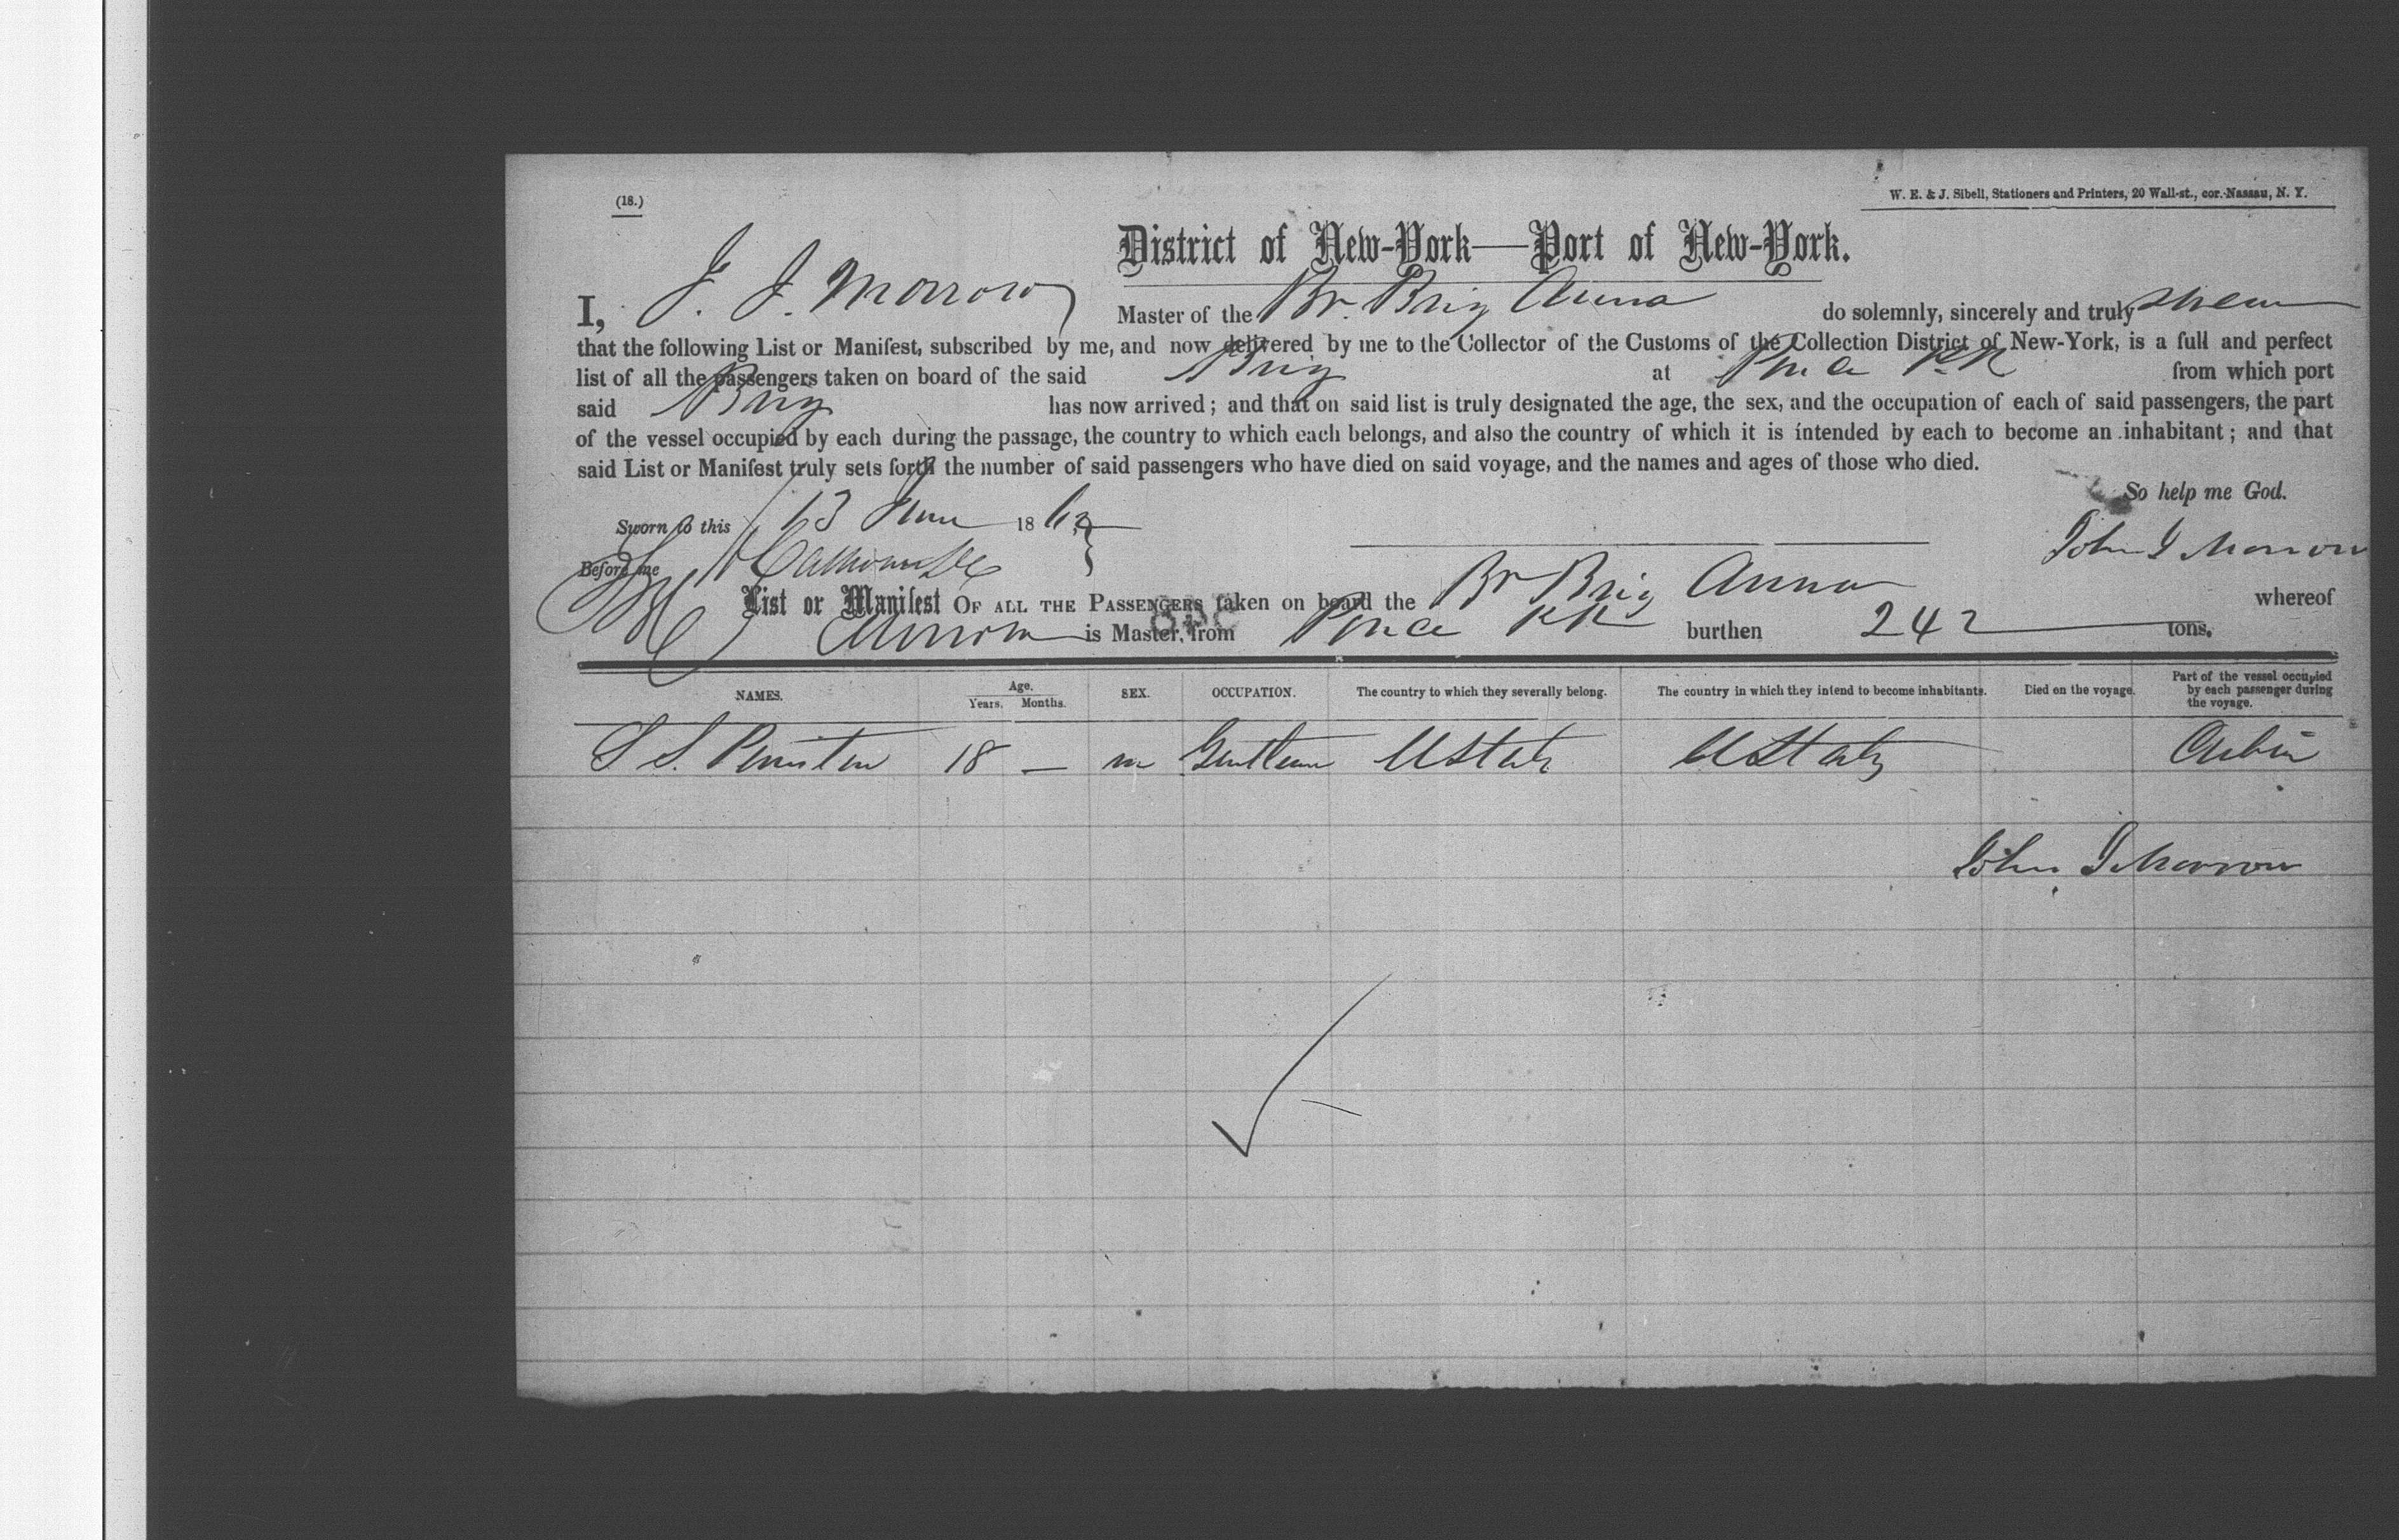 (18.)
W. E. & J. Sibell, Stationers and Printers, 20 Wall-st., cor. Nassau, N. Y.
District of New-York—Port of New-York.
I, J. J. Morrow Master of the Br. Brig Anna do solemnly, sincerely and truly swear
that the following List or Manifest, subscribed by me, and now delivered by me to the Collector of the Customs of the Collection District of New-York, is a full and perfect
list of all the passengers taken on board of the said Brig at Ponce P.R from which port
said Brig has now arrived; and that on said list is truly designated the age, the sex, and the occupation of each of said passengers, the part
of the vessel occupied by each during the passage, the country to which each belongs, and also the country of which it is intended by each to become an inhabitant; and that
said List or Manifest truly sets forth the number of said passengers who have died on said voyage, and the names and ages of those who died.
So help me God.
Sworn to this 13 June 1863
John J Morrow
Before me
List or Manifest OF ALL THE PASSENGERS taken on board the Br Brig Anna whereof
Morrow is Master, from Ponce PR burthen 242 tons.
NAMES. Age. Years. Months. SEX. OCCUPATION. The country to which they severally belong. The country in which they intend to become inhabitants. Died on the voyage. Part of the vessel occupied by each passenger during the voyage.
S. S. 18 — m Gentleman UStates UStates Cabin
John J Morrow